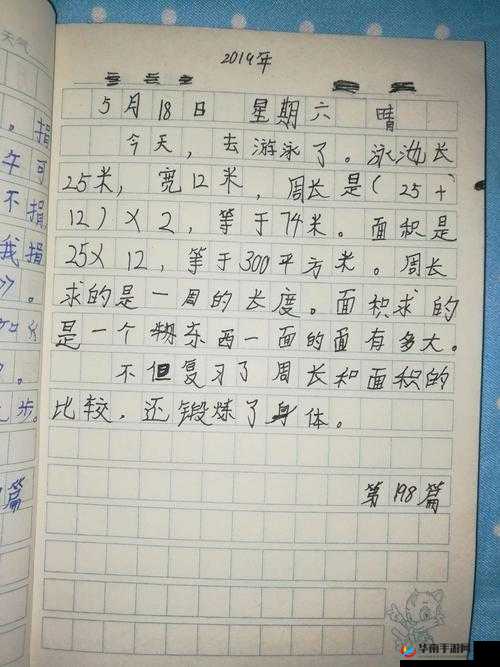 天气
2019年
5月18日 星期六 晴
今天，去游泳了。泳池长
25米，宽12米，周长是(25+
12)×2，等于74米。面积是
25×12，等于300平方米。周长
求的是一周的长度。面积求的
是一个物东西一面的面有多大。
不但复习了周长和面积的
比较，还锻炼了身体。
第198篇
。捐
午可
不捐，
我捐
。
步。
篇
华南手游网